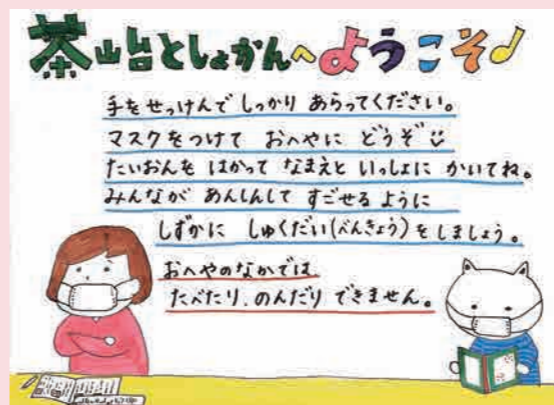 茶山台としょかんへようこそ♪
手をせっけんで しっかり あらってください。
マスクをつけて おへやに どうぞ
たいおんを はかって なまえと いっしょに かいてね。
みんなが あんしんして すごせるように
しずかに しゅくだい(べんきょう)をしましょう。
おへやのなかでは
たべたり、のんだり できません。